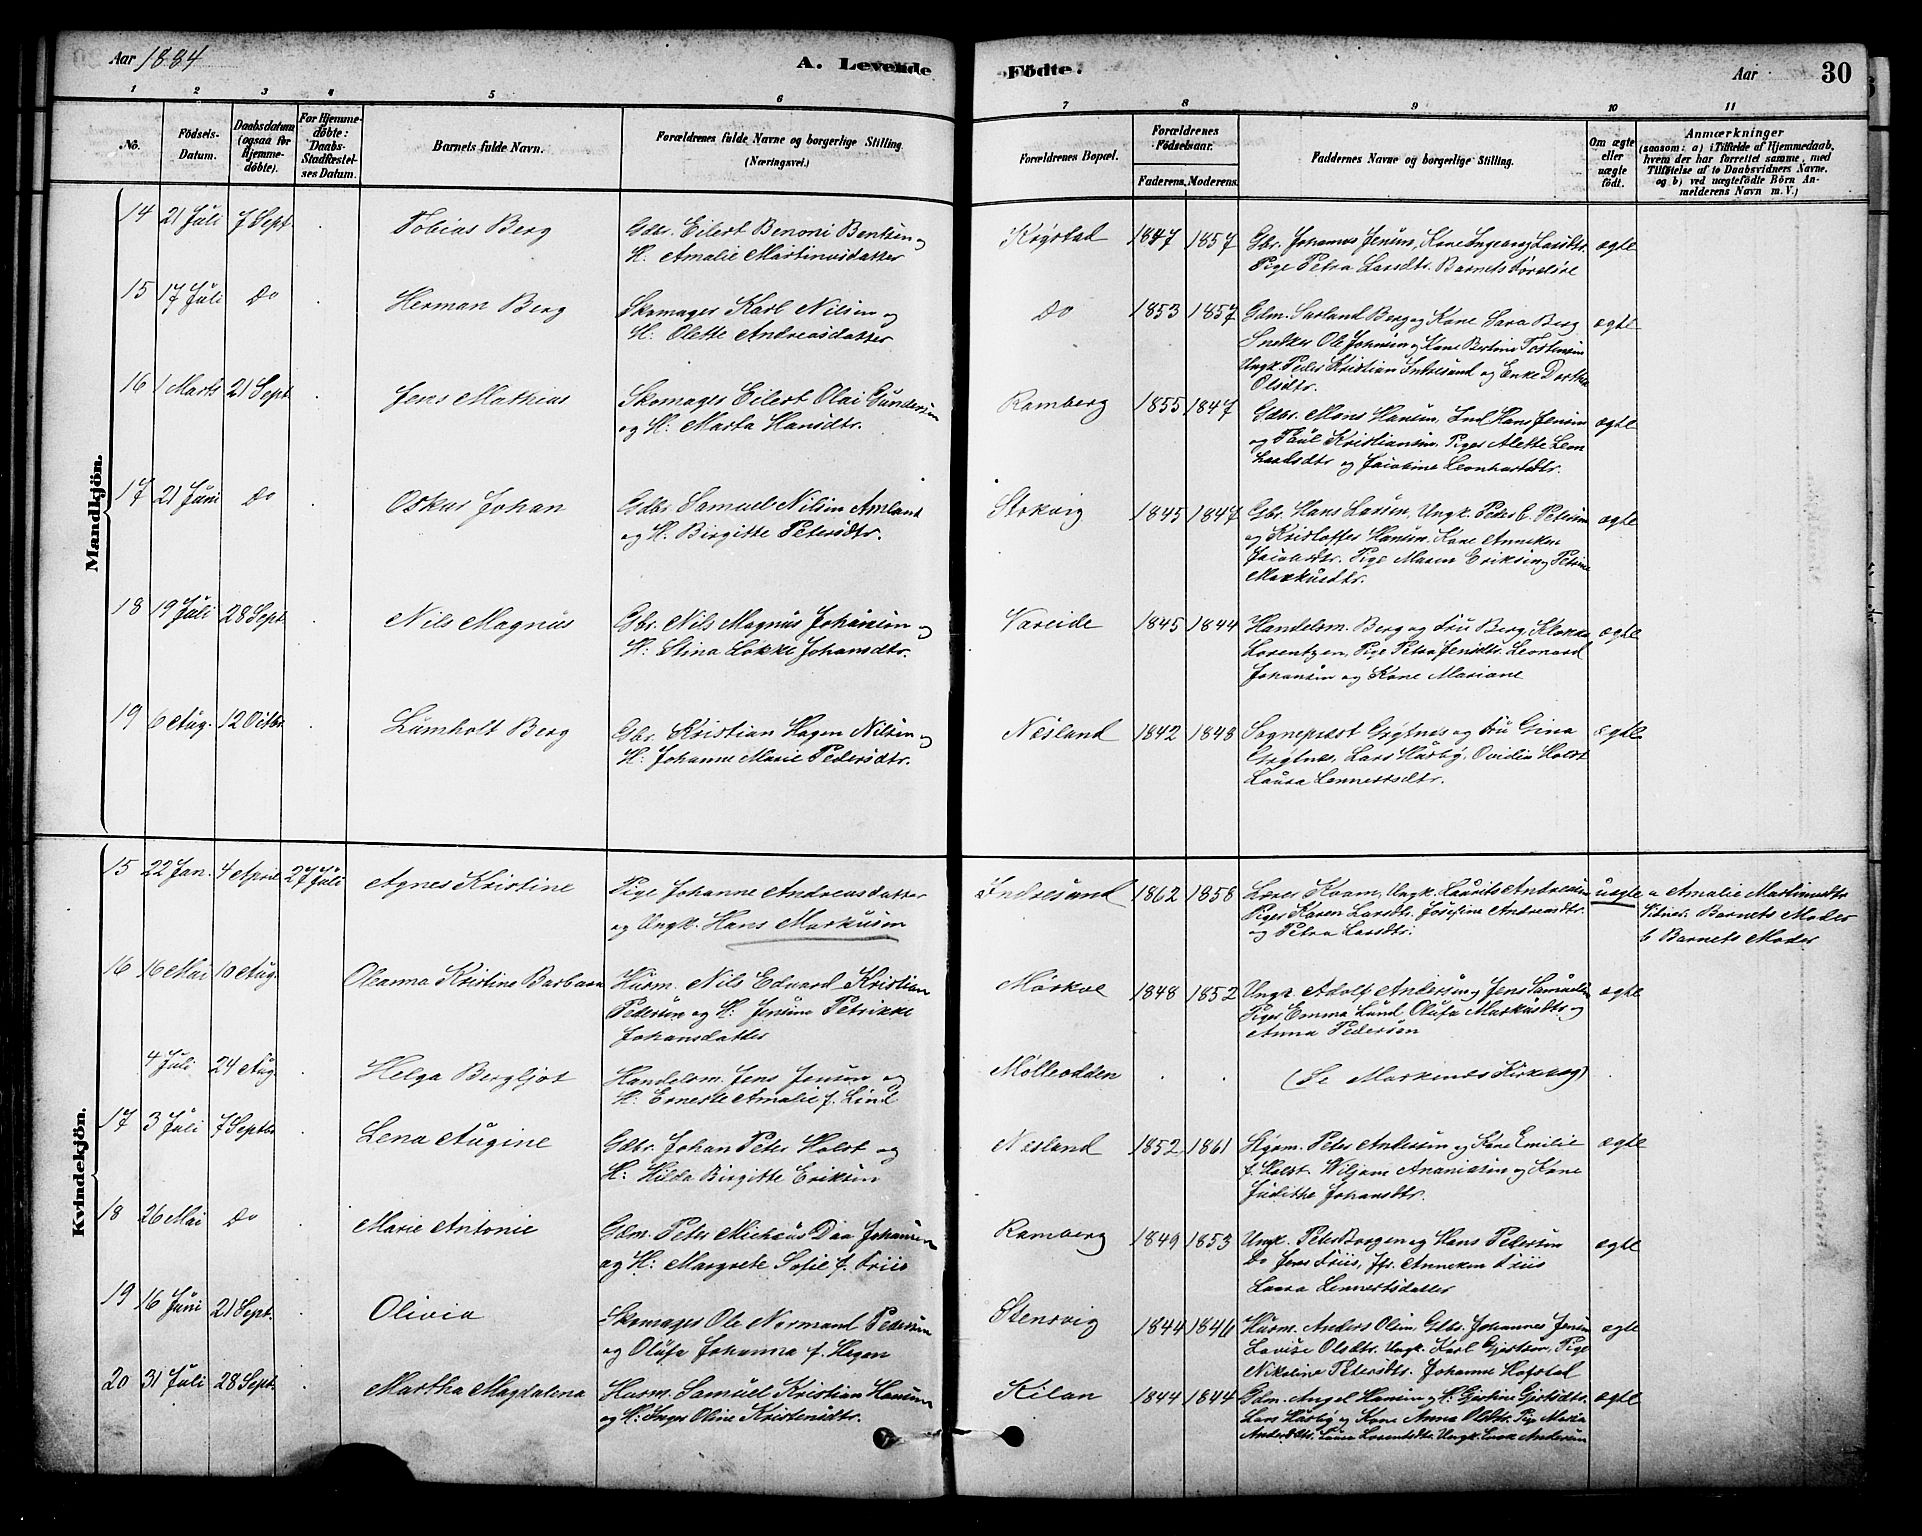 Aar 1884
A. Levende
Födte.
Aar
30
1 2 3 4 5 6 7 8 9 10 11
No.
Födsels-
Datum.
Daabsdatum
(ogsaa for
Hjemme-
døbte).
For Hjemme-
døbte:
Daabs-
Stadfæstel-
ses Datum.
Barnets fulde Navn.
Forældrenes fulde Navne og borgerlige Stilling.
(Næringsvei.)
Forældrenes Bopæl.
Forældrenes
Födselsaar.
Faderens. Moderens.
Faddernes Navne og borgerlige Stilling.
Om ægte
eller
uægte
födt.
Anmærkninger
(saasom: a) i Tilfælde af Hjemmedaab,
hvem der har forrettet samme, med
Tilföielse af to Daabsvidners Navne.
og b) ved uægtefödte Börn An-
melderens Navn m. V.)
Mandkjön.
14 21 Juli 7 Sept. Tobias Berg
Gbr. Eilert Benoni Bentsen og
H. Amalie Martinusdatter
Krystad 1847 1857
Gbr. Johannes Jensen, Kone Ingeborg Larsdtr.
Pige Petra Larsdtr. Barnets Forældre
ægte
15 17 Juli Do Herman Berg
Skomager Karl Nilsen og
H. Olette Andreasdatter
Do 1853 1857
Gdm. Surland Berg og Kone Sara Berg
Snedker Ole Johnsen og Kone Bertine Tostensen
Ungk. Peder Kristian Indresund og Enke Dorthea
Olsdtr.
ægte
16 1 Marts 21 Sept. Jens Mathias
Skomager Eilert Olai Gundersen
og H. Marta Hansdtr.
Ramberg 1855 1847
Gdbr. Mons Hansen, Ind. Hans Jensen
og Paul Kristiansen, Piger Alette Leon
hardsdtr og Jacobine Leonhardtr.
ægte
17 21 Juni Do Oskar Johan
Gdbr Samuel Nilsen Amland
og H. Birgitte Petersdtr.
Storvig 1845 1847
Gbr. Hans Larsen, Ungk. Peder C. Petersen
og Kristoffer Hansen, Kone Anneken
Jacobsdtr. Pige Maren Eriksen og Petrine
Markusdtr.
ægte
18 19 Juli 28 Sept. Nils Magnus
Gbr. Nils Magnus Johansen og
H. Stina Lokke Johansdtr.
Vareide 1845 1844
Handelsm. Berg og Fru Berg, Klokker
Lorentzen, Pige Petra Jensdtr. Leonard
Johansen og Kone Mariane
ægte
19 6 Aug. 12 Octbr. Lumholt Berg
Gbr. Kristian Hagen Nilsen og
H. Johanne Marie Pedersdtr.
Næsland 1842 1848
Sognepræst Grytnes og Fru Gina
Grytnes, Lars Husby, Ovidia Holst
Laura Lennertsdtr.
ægte
Kvindekjön.
15 22 Jan. 4 April 27 Juli Agnes Kristine
Pige Johanne Andreasdatter
og Ungk. Hans Markusen
Indresund 1862 1858
Lærer Kvam, Ungk. Laurits Andreasen
Piger Karen Larsdtr. Josefine Andreasdtr.
og Petra Larsdtr.
uægte
a Amalie Martinusdtr
Vitner. Barnets Moder
b Barnets Moder
16 16 Mai 10 Aug. Oleanna Kristine Barbara
Husm. Nils Edvard Kristian
Pedersen og H. Jensine Petrikke
Johansdatter
Mørkve 1848 1852
Ungk. Adolf Andersen og Jens Samuelsen
Piger Emma Lund, Olufa Markusdtr og
Anna Pedersen
ægte
4 Juli 24 Aug. Helga Bergljot
Handelsm. Jens Jensen og
H. Erneste Amalie f. Lind
Mølleodden
(Se Moskenæs Kirkebog)
17 3 Juli 7 Septbr Lena Augine
Gdbr. Johan Peter Holst og
H. Hilda Birgitte Eriksen
Næsland 1852 1861
Stym. Peter Andersen og Kone Emilie
f. Holst. Wiljam Ananiasen og Kone
Judithe Johansdtr.
ægte
18 26 Mai Do Marie Antonie
Gdm. Peter Michæus Daa Johansen
og H. Margrete Sofie f. Friis
Ramberg 1849 1853
Ungk. Peter Borgen og Hans Pedersen
Do Jens Friis, Jfr. Anneken Friis
Laura Lennertsdatter
ægte
19 16 Juni 21 Sept. Olivia
Skomager Ole Normand Pedersen
og Olufa Johanna f. Hagen
Stensvig 1844 1846
Husm. Anders Olsen, Gdbr. Johannes Jensen
Lovise Olsdtr. Ungk. Karl Gjertsen, Pige
Nikoline Petersdtr. Johanne Hofstad
ægte
20 31 Juli 28 Sept. Martha Magdalena
Husm. Samuel Kristian Hansen
og H. Inger Oline Kristensdtr.
Kilan 1844 1844
Gdm. Angel Hansen og H. Gjertine Gjertsdtr.
Lars Husby og Kone Anna Olsdtr. Pige Maria
Andersdtr. Laura Lorentsdtr. Ungk. Enok Andersen
ægte